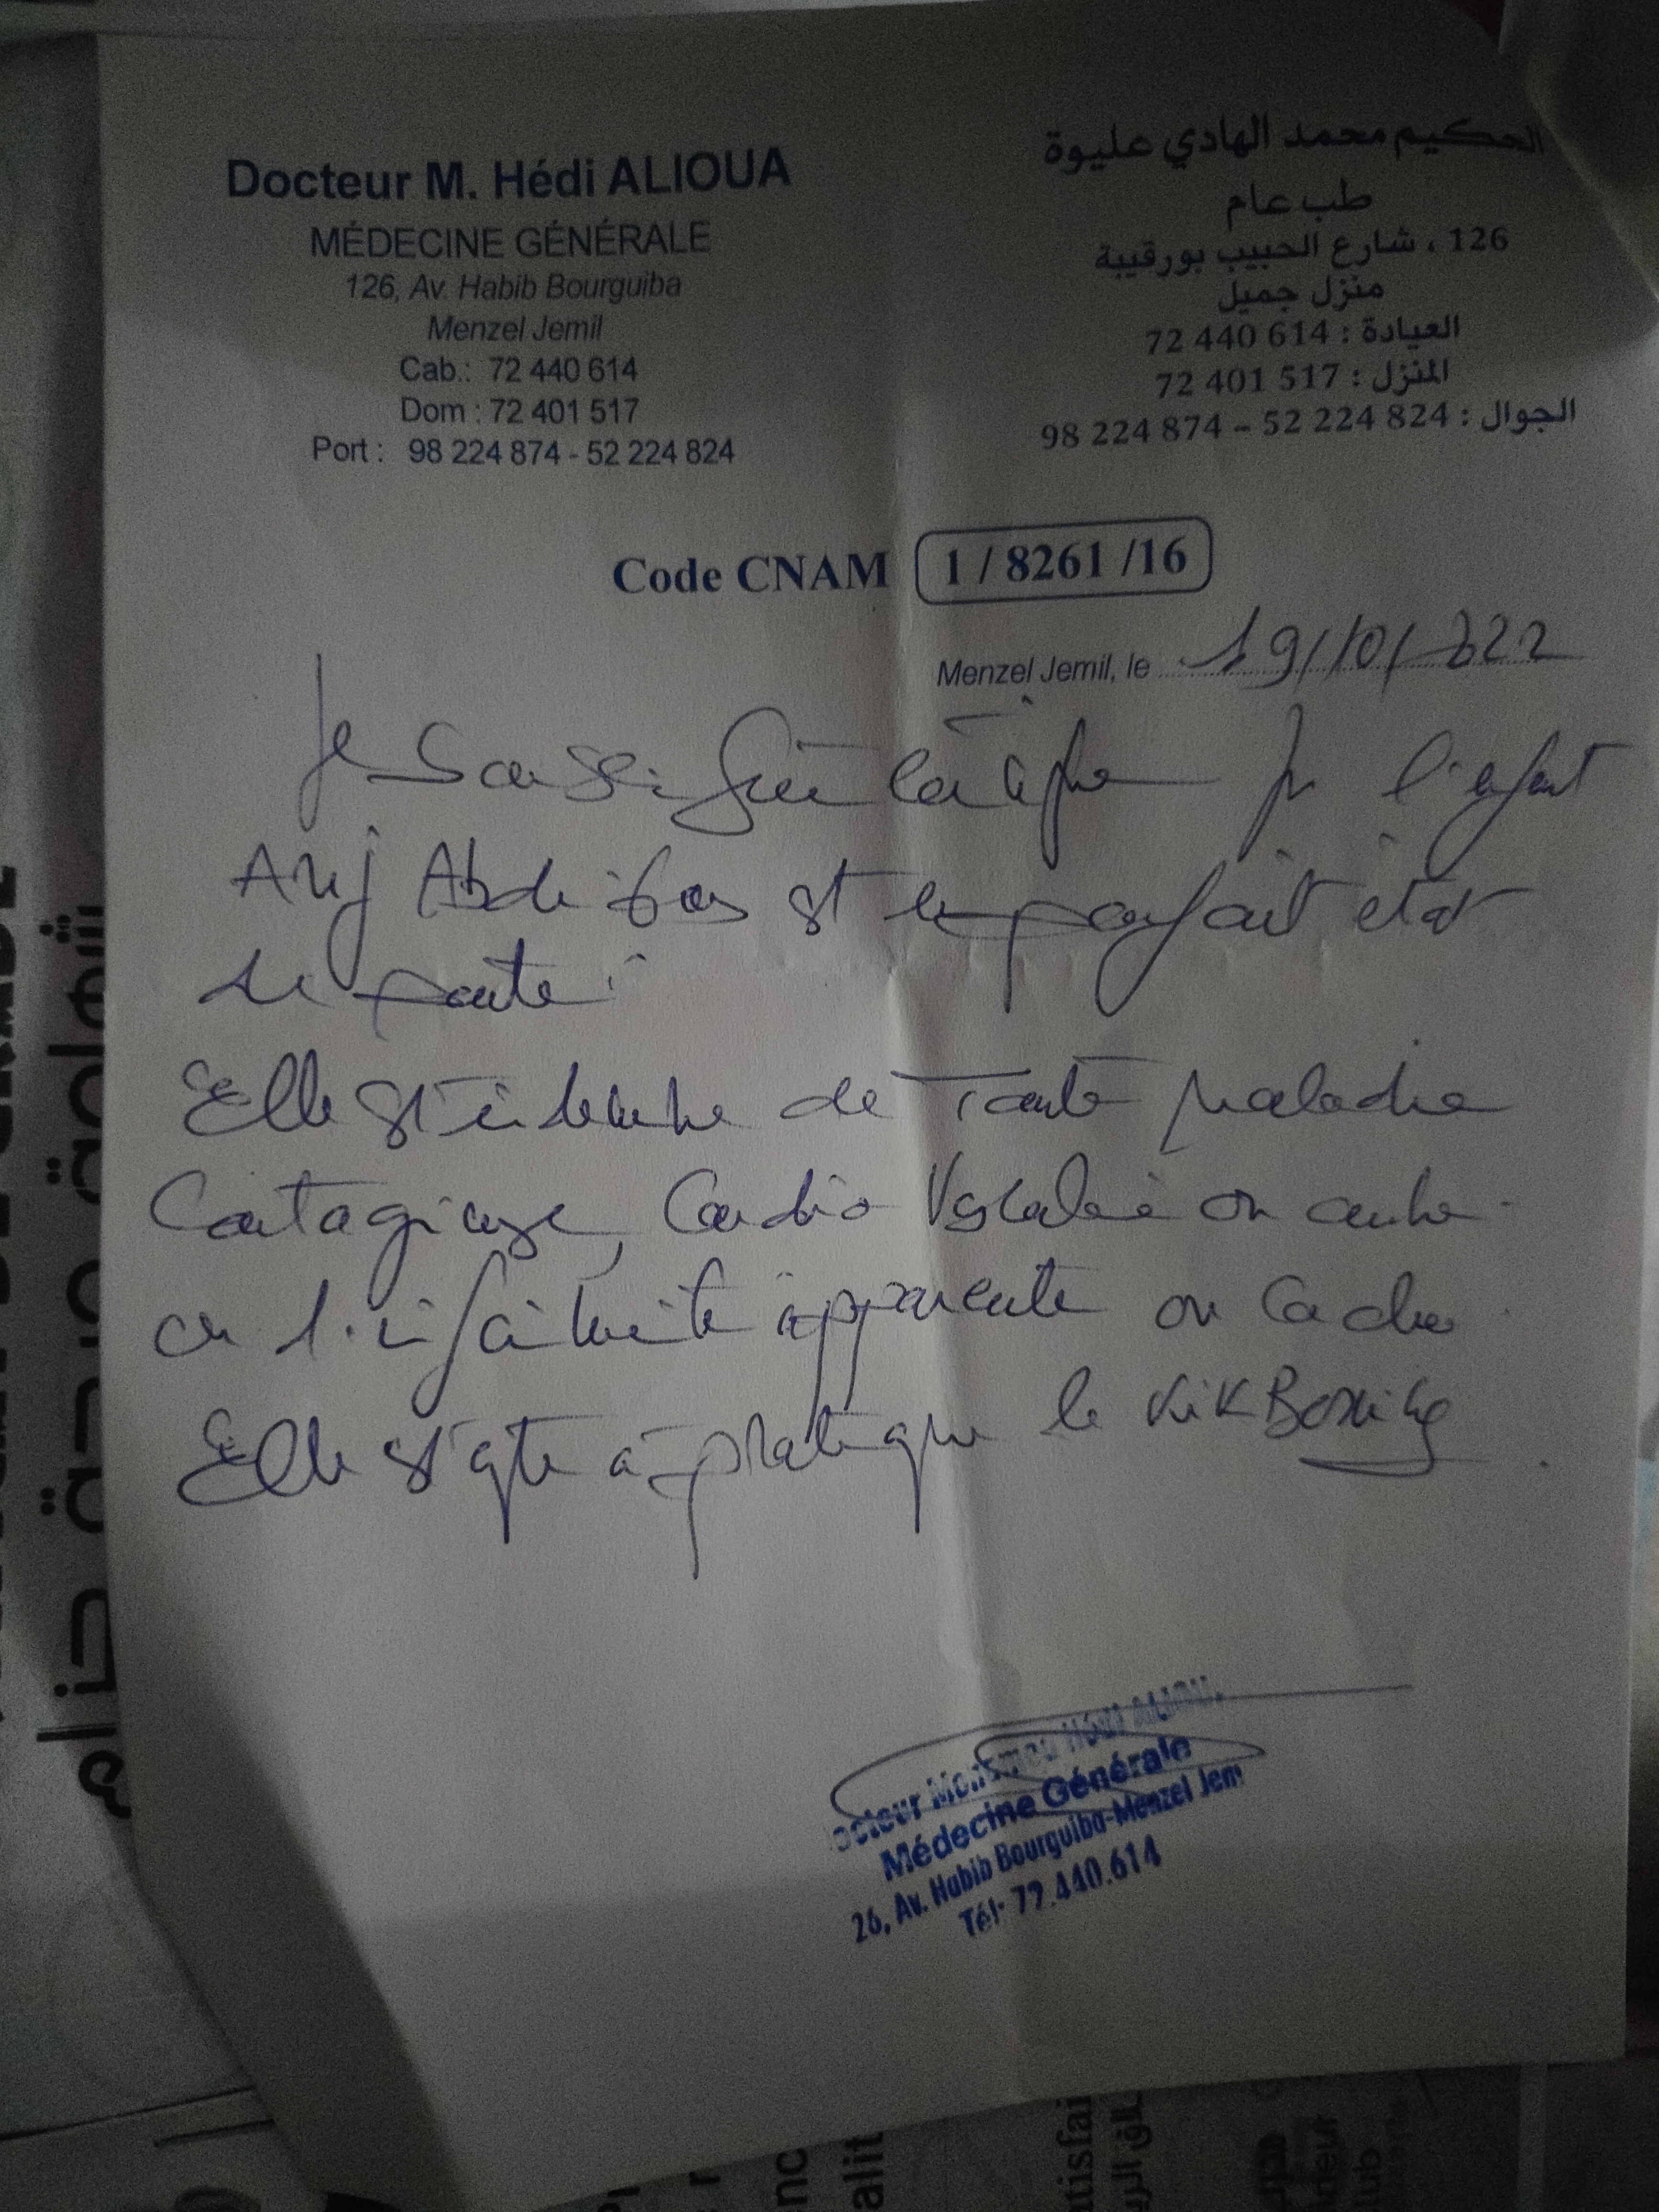 Docteur M. Hédi ALIOUA
MÉDECINE GÉNÉRALE
126, Av. Habib Bourguiba
Menzel Jemil
Cab.: 72 440 614
Dom : 72 401 517
Port : 98 224 874 - 52 224 824
الحكيم محمد الهادي عليوة
طب عام
126 ، شارع الحبيب بورقيبة
منزل جميل
العيادة : 614 440 72
المنزل : 517 401 72
الجوال : 824 224 52 – 874 224 98
Code CNAM 1 / 8261 /16
Menzel Jemil, le 19/10/2022
Je soussigné certifie que l'enfant
Arij est en parfait état
de santé.
Elle est indemne de toute maladie
Contagieuse, Cardio Vasculaire ou autre
ou d'infirmité apparente ou cachée
Elle est apte à pratiquer le KikBoxing
Médecine Générale
26, Av. Habib Bourguiba-Menzel Jem
Tél: 72.440.614